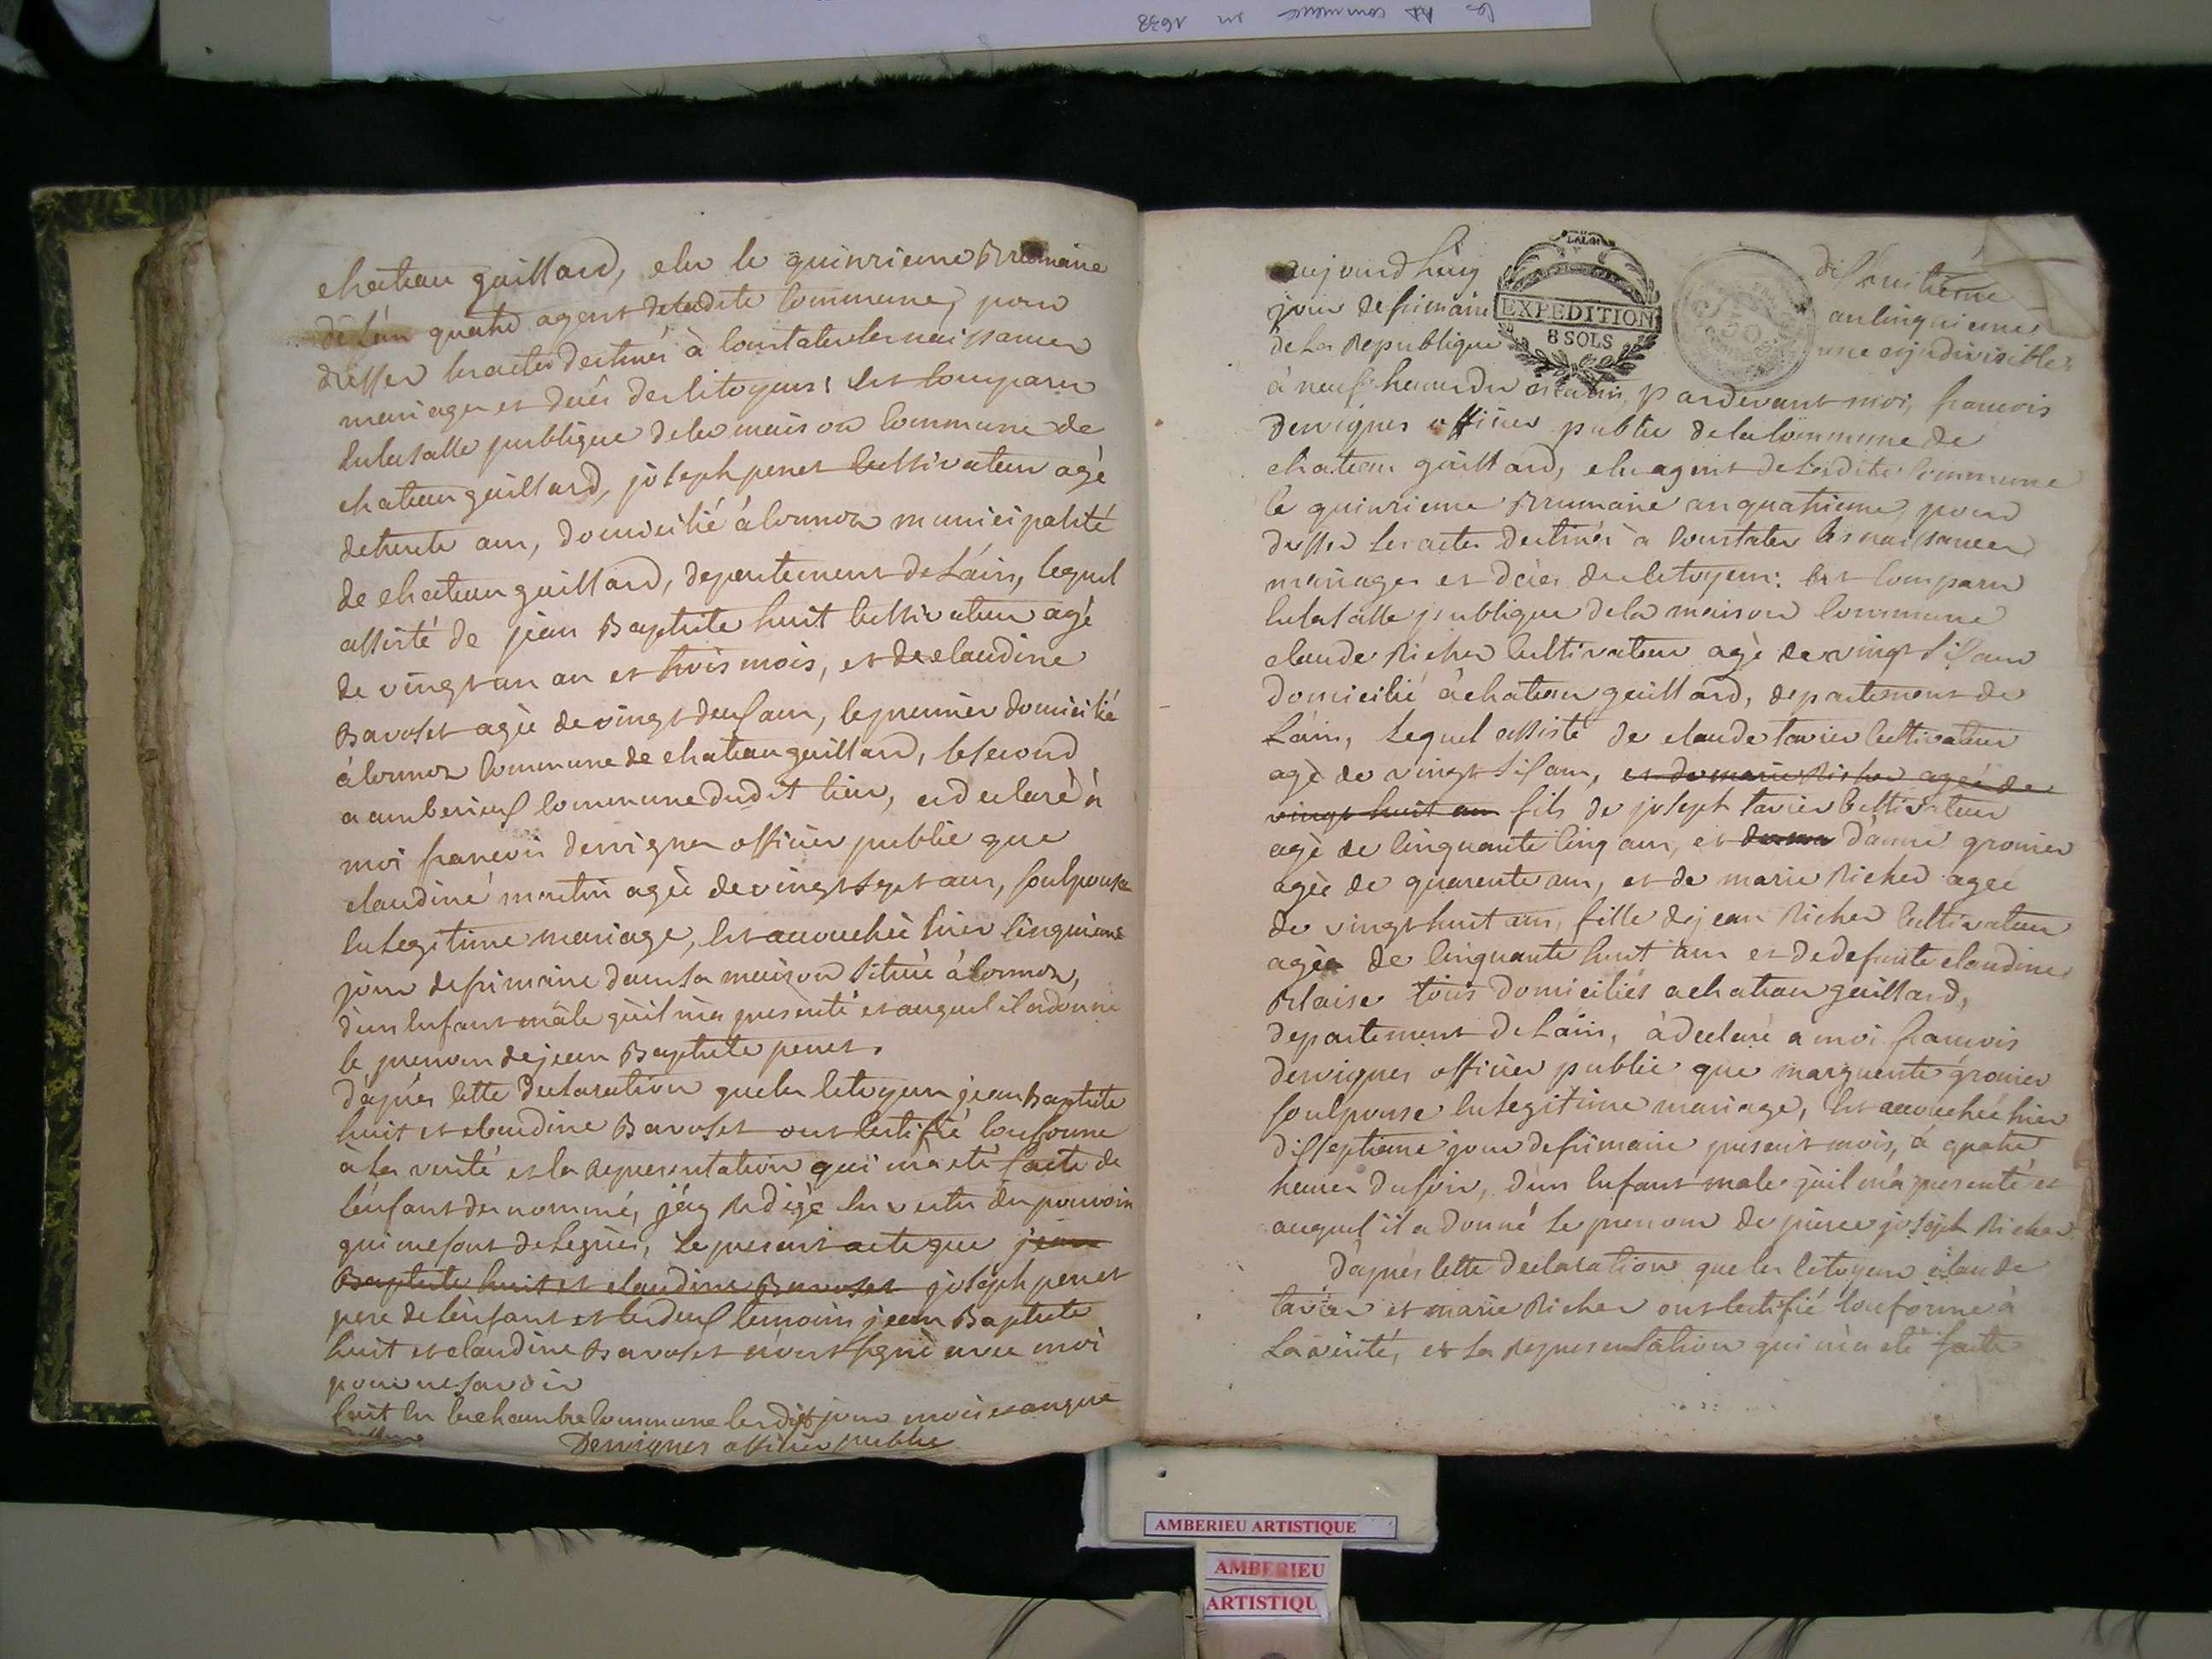 les commence en 1638
chateau gaillard, elu le quinzieme Brumaire
de l'an quatre agent deladite Commune, pour
dresser les actes destinés à Constater les naissances
mariages et décés des Citoyens: est Comparu
en la salle publique de la maison Commune de
chateau gaillard, joseph penet Cultivateur agé
de trente ans, domicilié à Cormoz municipalité
de chateau gaillard, departement de L'áin, lequel
assisté de jean Baptiste huit Cultivateur agé
de vingt un an et trois mois, et de claudine
Bavoset agèe de vingt deux ans, le premier domicilié
à Cormoz Commune de chateau gaillard, le second
a amberieux Commune dudit lieu, a declaré à
moi francois dervignes officier public que
claudine martin agèe de vingt sept ans, son epouse
en Legitime mariage, est accouchée hier Cinquieme
jour de frimaire dans sa maison située à Cormoz,
d'un Enfant mâle qu'il m'a presenté et auquel il a donné
le prenom de jean Baptiste penet.
D'aprés Cette declaration que les Citoyens jean Baptiste
huit et claudine Bavoset ont Certifié Conforme
à la verité et la representation qui m'a eté faite de
l'énfant denommé, j'ay Redigé en vertu des pouvoirs
qui me sont delegués, le present acte que jean
Baptiste huit et claudine Bavoset joseph penet
pere de l'énfant et les deux temoins jean Baptiste
huit et claudine Bavoset n'ont signé avec moi
pour ne savoir
fait en la chambre Commune les dits jour mois et an que
dessus Dervignes officier public
aujourd'huy dix huitieme
jour de frimaire an Cinquieme
de La Republique une et indivisible
EXPEDITION
8 SOLS
à neuf heures du matin, pardevant moi, francois
dervignes officier public de la Commune de
chateau gaillard, elu agent de Ladite Commune
le quinzieme Brumaire an quatrieme, pour
dresser Les actes destinés à Constater les naissances
mariages et décés des Citoyens: est Comparu
en la salle publique de la maison Commune
claude Richer Cultivateur agé de vingt six ans
domicilié à chateau gaillard, departement de
L'áin, Lequel assisté de claude tavier Cultivateur
agé de vingt six ans, et de marie Richer agée de
vingt huit ans fils de joseph tavier Cultivateur
agé de Cinquante Cinq ans, et d'anne gronier
agée de quarente ans, et de marie Richer agee
de vingt huit ans, fille de jean Richer Cultivateur
agée de Cinquante huit ans et de defunte claudine
Blaise tous domiciliés a chateau gaillard,
departement de L'áin, à declaré a moi francois
dervignes officier public que marguerite gronier
son epouse en Legitime mariage, est accouchée hier
dix septieme jour de frimaire present mois, á quatre
heures du soir, d'un Enfant male qu'il m'a presenté et
auquel il a donné Le prenom de pierre joseph Richer
D'aprés Cette declaration que les Citoyens claude
tavier et marie Richer ont Certifié Conforme à
La verité, et La representation qui m'a eté faite
AMBERIEU ARTISTIQUE
AMBERIEU
ARTISTIQU